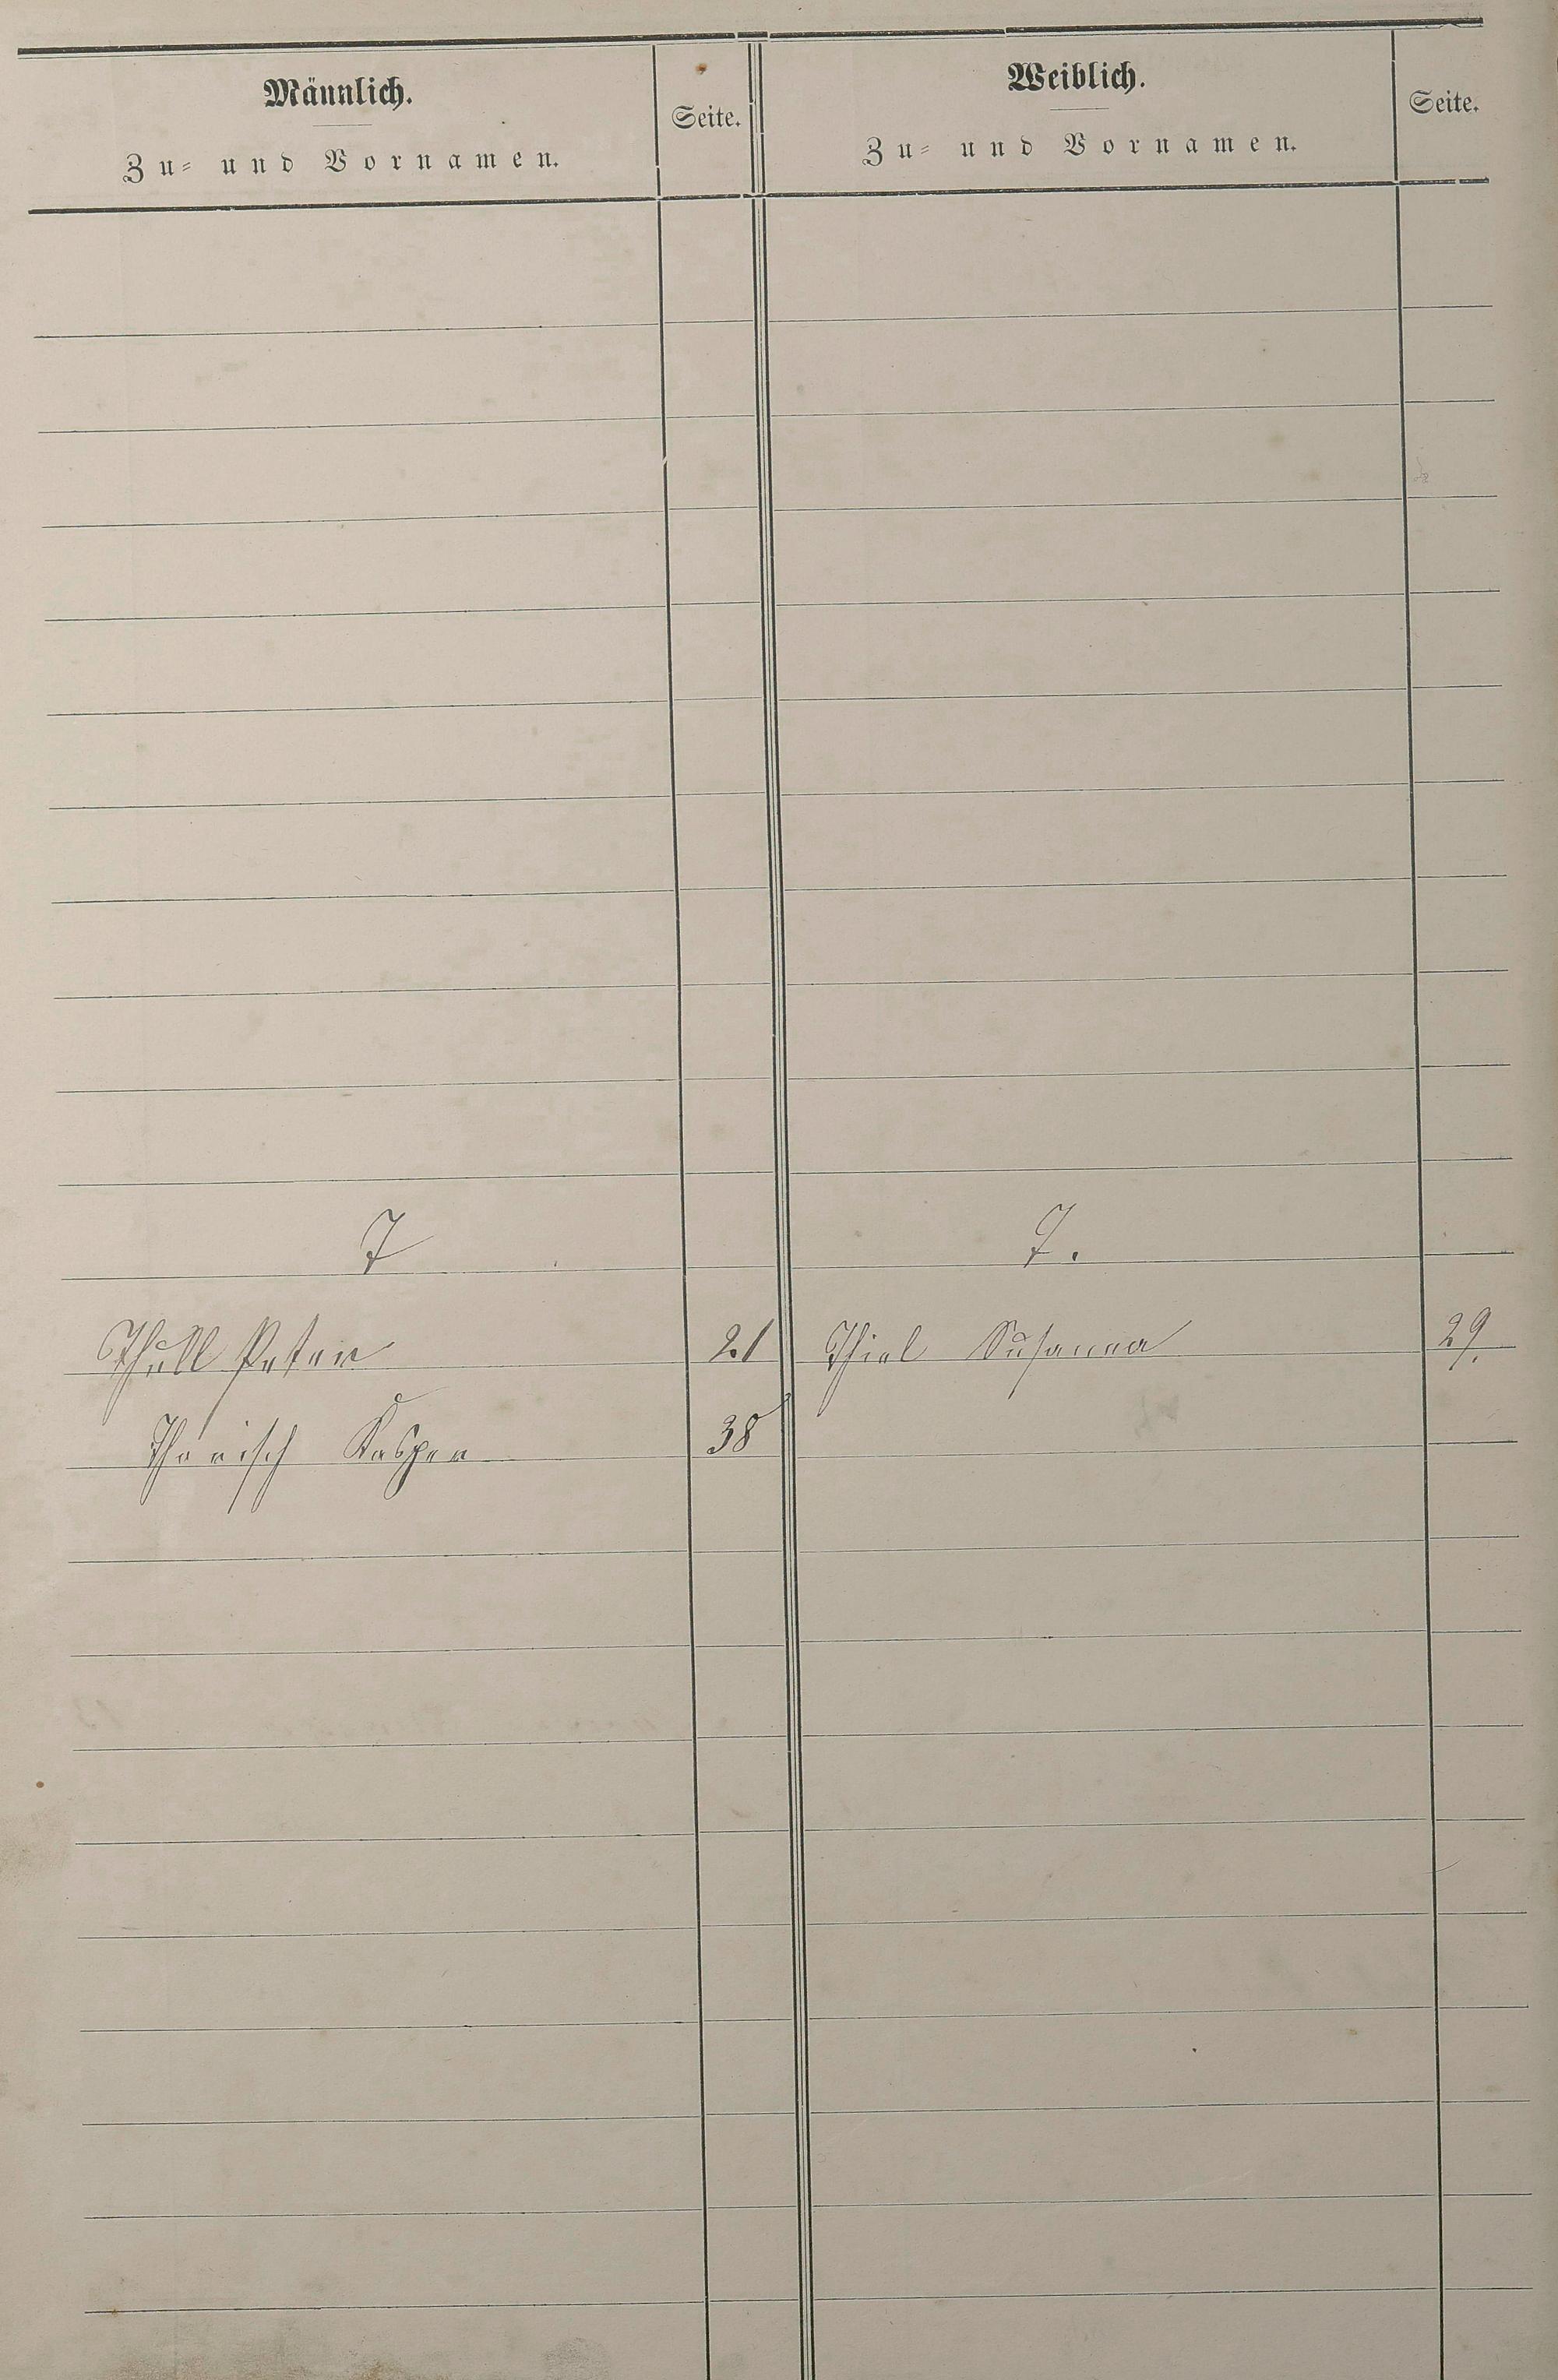 Männlich.
Zu- und Vornamen.
Seite.
Weiblich.
Zu- und Vornamen.
Seite.
T
T.
Thull Peter
21
Thiel Susanna
29.
Kasper
38